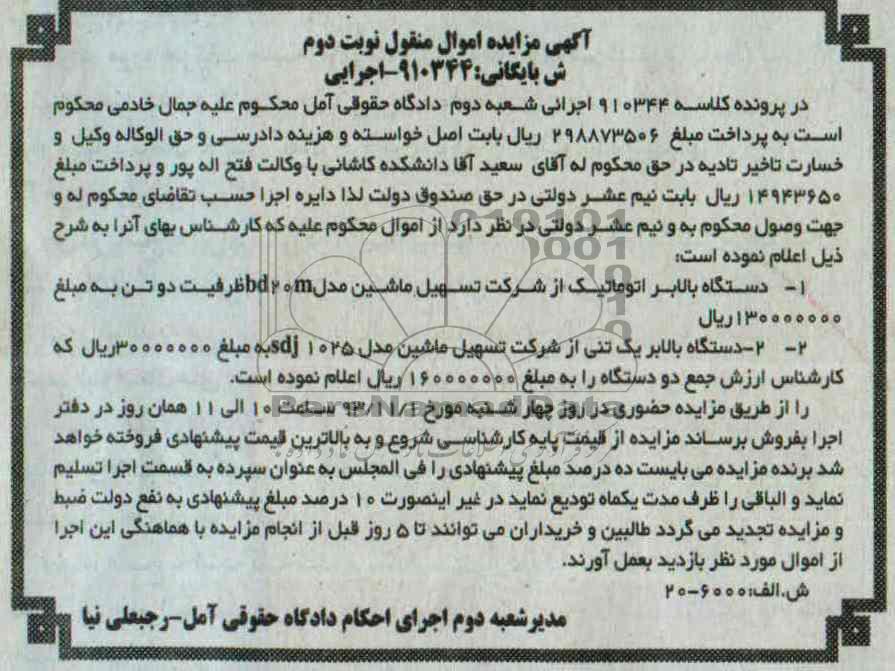 آگهی مزایده اموال منقول نوبت دوم
ش بایگانی:۹۱۰۳۴۴-اجرایی
در پرونده کلاسه ۹۱۰۳۴۴ اجرائی شعبه دوم دادگاه حقوقی آمل محکوم علیه جمال خادمی محکوم
است به پرداخت مبلغ ۲۹۸۸۷۳۵۰۶ ریال بابت اصل خواسته و هزینه دادرسی و حق الوکاله وکیل و
خسارت تاخیر تادیه در حق محکوم له آقای سعید آقا دانشکده کاشانی با وکالت فتح اله پور و پرداخت مبلغ
۱۴۹۴۳۶۵۰ ریال بابت نیم عشر دولتی در حق صندوق دولت لذا دایره اجرا حسب تقاضای محکوم له و
جهت وصول محکوم به و نیم عشر دولتی در نظر دارد از اموال محکوم علیه که کارشناس بهای آنرا به شرح
ذیل اعلام نموده است:
۱- دستگاه بالابر اتوماتیک از شرکت تسهیل ماشین مدل bd۲۰m ظرفیت دو تن به مبلغ
۱۳۰۰۰۰۰۰۰ ریال
۲- ۲-دستگاه بالابر یک تنی از شرکت تسهیل ماشین مدل sdj ۱۰۲۵ به مبلغ ۳۰۰۰۰۰۰۰ ریال که
کارشناس ارزش جمع دو دستگاه را به مبلغ ۱۶۰۰۰۰۰۰۰ ریال اعلام نموده است.
را از طریق مزایده حضوری در روز چهار شنبه مورخ ۹۳/۱۱/۱ ساعت ۱۰ الی ۱۱ همان روز در دفتر
اجرا بفروش برساند مزایده از قیمت پایه کارشناسی شروع و به بالاترین قیمت پیشنهادی فروخته خواهد
شد برنده مزایده می بایست ده درصد مبلغ پیشنهادی را فی المجلس به عنوان سپرده به قسمت اجرا تسلیم
نماید و الباقی را ظرف مدت یکماه تودیع نماید در غیر اینصورت ۱۰ درصد مبلغ پیشنهادی به نفع دولت ضبط
و مزایده تجدید می گردد طالبین و خریداران می توانند تا ۵ روز قبل از انجام مزایده با هماهنگی این اجرا
از اموال مورد نظر بازدید بعمل آورند.
ش.الف:۶۰۰۰-۲۰
مدیرشعبه دوم اجرای احکام دادگاه حقوقی آمل-رجبعلی نیا